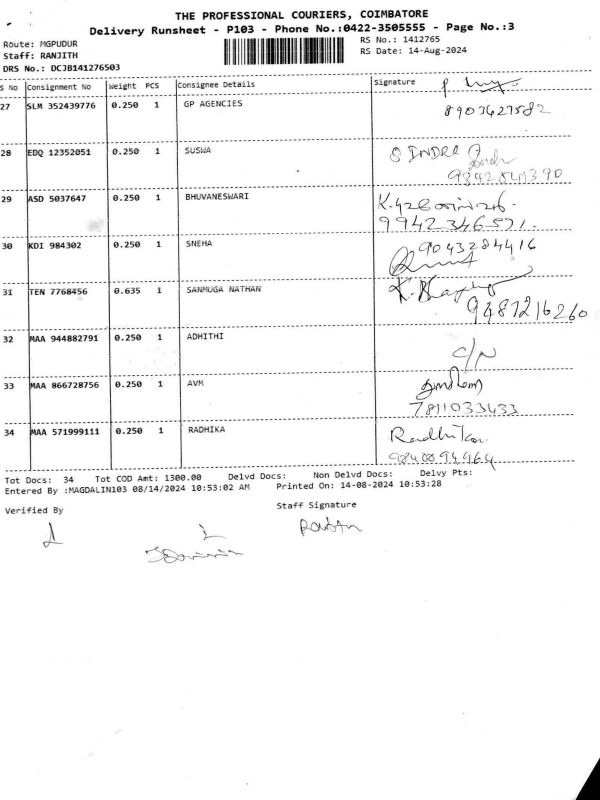 THE PROFESSIONAL COURIERS, COIMBATORE
Delivery Runsheet - P103 - Phone No.:0422-3505555 - Page No.:3
Route: MGPUDUR
RS No.: 1412765
Staff: RANJITH
RS Date: 14-Aug-2024
DRS No.: DCJB141276503
S No Consignment No Weight PCS Consignee Details Signature
27 SLM 352439776 0.250 1 GP AGENCIES
8903627582
28 EDQ 12352051 0.250 1 SUSWA S INDRA
9842841390
29 ASD 5037647 0.250 1 BHUVANESWARI
9942346571.
30 KDI 984302 0.250 1 SNEHA 9043284416
31 TEN 7768456 0.635 1 SANMUGA NATHAN
9487216260
32 MAA 944882791 0.250 1 ADHITHI
C/N
33 MAA 866728756 0.250 1 AVM
7811033433
34 MAA 571999111 0.250 1 RADHIKA Radhika
Tot Docs: 34 Tot COD Amt: 1300.00 Delvd Docs: Non Delvd Docs: Delvy Pts:
Entered By :MAGDALIN103 08/14/2024 10:53:02 AM Printed On: 14-08-2024 10:53:28
Verified By
Staff Signature